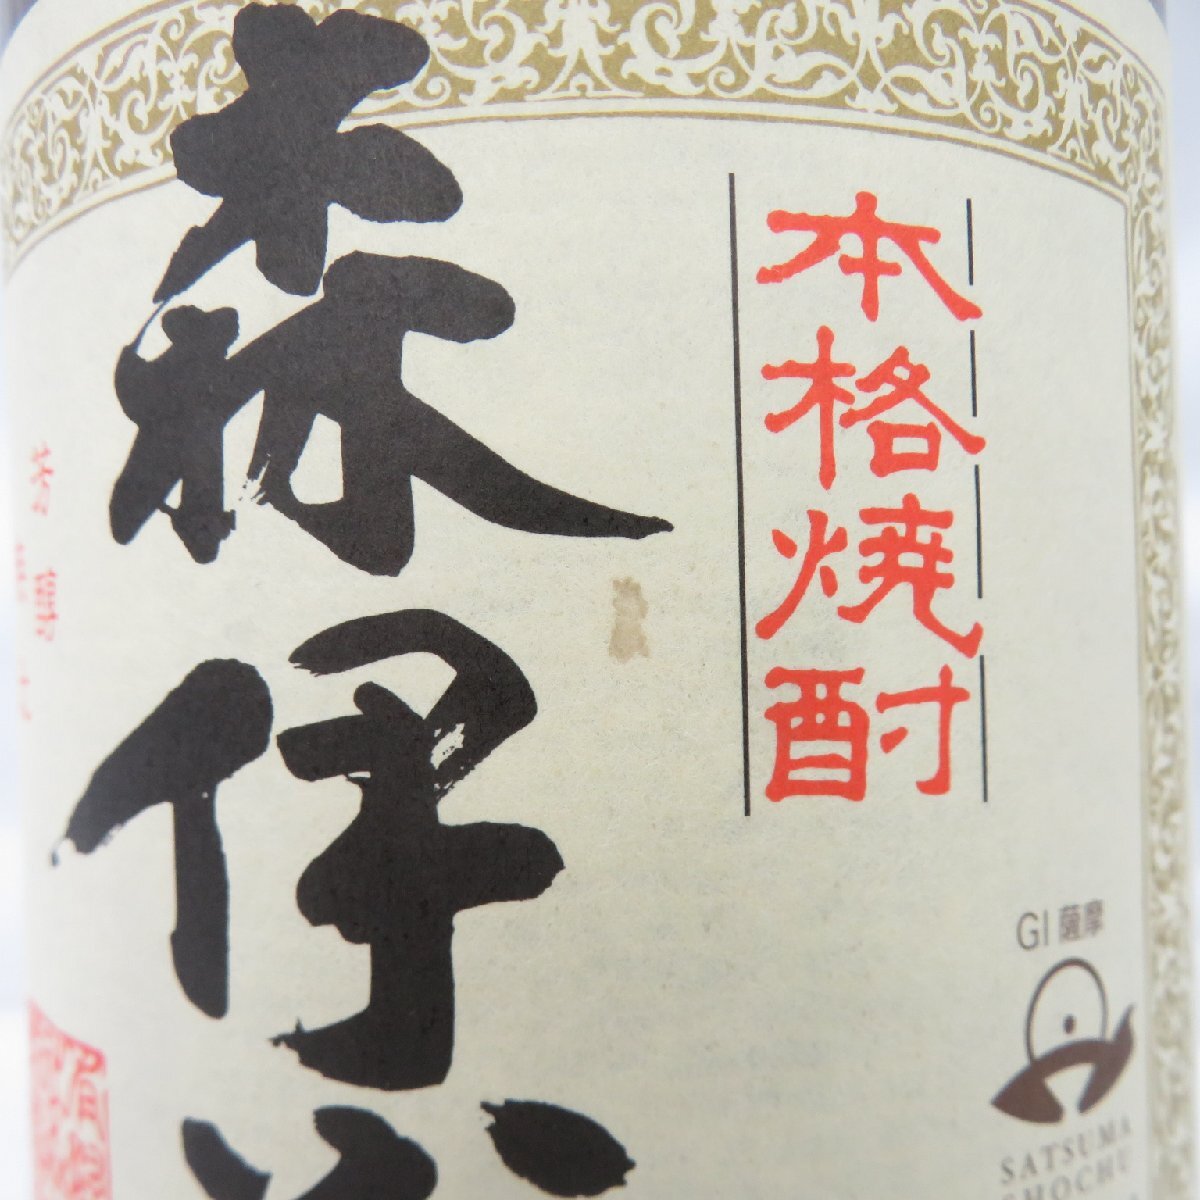 本格焼酎
森伊
GI 薩摩
SATSUMA